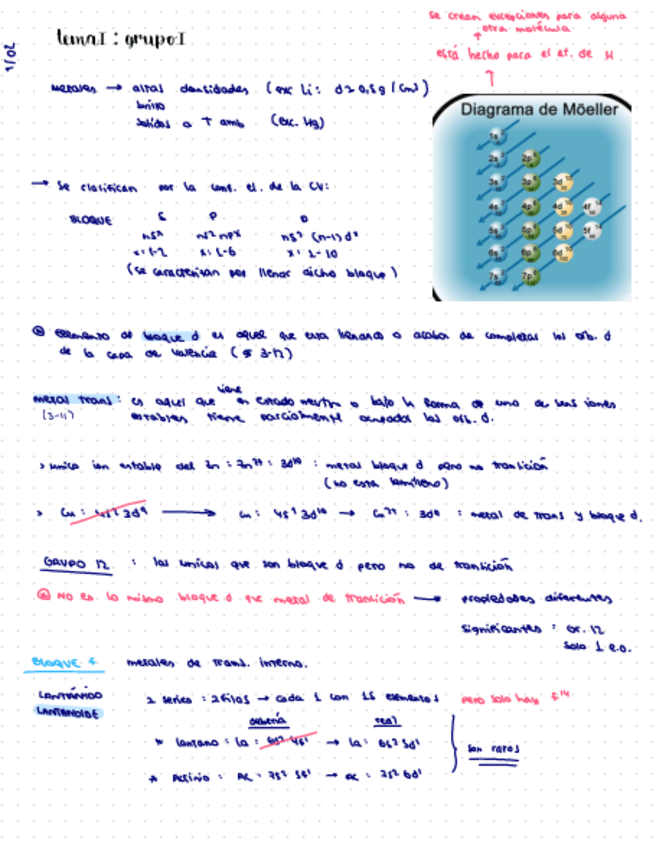 se crean excepciones para alguna
otra molécula
está hecho para el at. de H
1/02
tema I : grupo I
metales → altas densidades (exc Li: d≥0,5g/cm³)
brillo
solidos a T amb (exc. Hg)
Diagrama de Möeller
1s
2s 2p
3s 3p 3d
4s 4p 4d 4f
5s 5p 5d 5f
6s 6p 6d
7s 7p
→ se clasifican por la conf. el. de la CV:
BLOQUE S P D
ns^x ns² np^x ns² (n-1)d^x
x: 1-2 x: 1-6 x: 1-10
(se caracterizan por llenar dicho bloque)
elemento de bloque d es aquel que esta llenando o acaba de completar los orb. d
de la capa de valencia (3-12)
metal trans: es aquel que tiene en estado neutro o bajo la forma de uno de sus iones
(3-11) estables tiene parcialmente ocupados los orb. d.
> unico ion estable del Zn : Zn²⁺ : 3d¹⁰ : metal bloque d pero no transición
(no esta lleno)
> Cu : 4s² 3d⁹ → Cu : 4s¹ 3d¹⁰ → Cu²⁺ : 3d⁹ : metal de trans y bloque d.
GRUPO 12 : los unicos que son bloque d pero no de transición
NO es lo mismo bloque d que metal de transición → propiedades diferentes
significantes : gr. 12
solo 1 e.o.
BLOQUE f metales de trans. interna.
LANTÁNIDO 2 series : 2 filas → cada 1 con 15 elementos pero solo hay f¹⁴
LANTANOIDE
debería real
* lantano : La : 6s² 4f¹ → La : 6s² 5d¹
son raros
* Actinio : Ac : 7s² 5f¹ → Ac : 7s² 6d¹